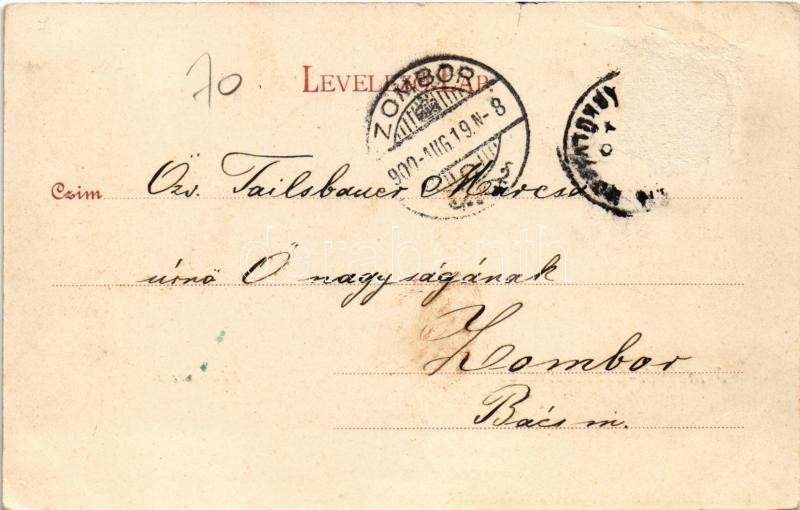 70
LEVELEZŐ-LAP.
ZOMBOR
900-AUG19.N-8
Czim Özv. Tailsbauer Marcsa
úrnő Ő nagyságának
Zombor
Bács m.
darabanth